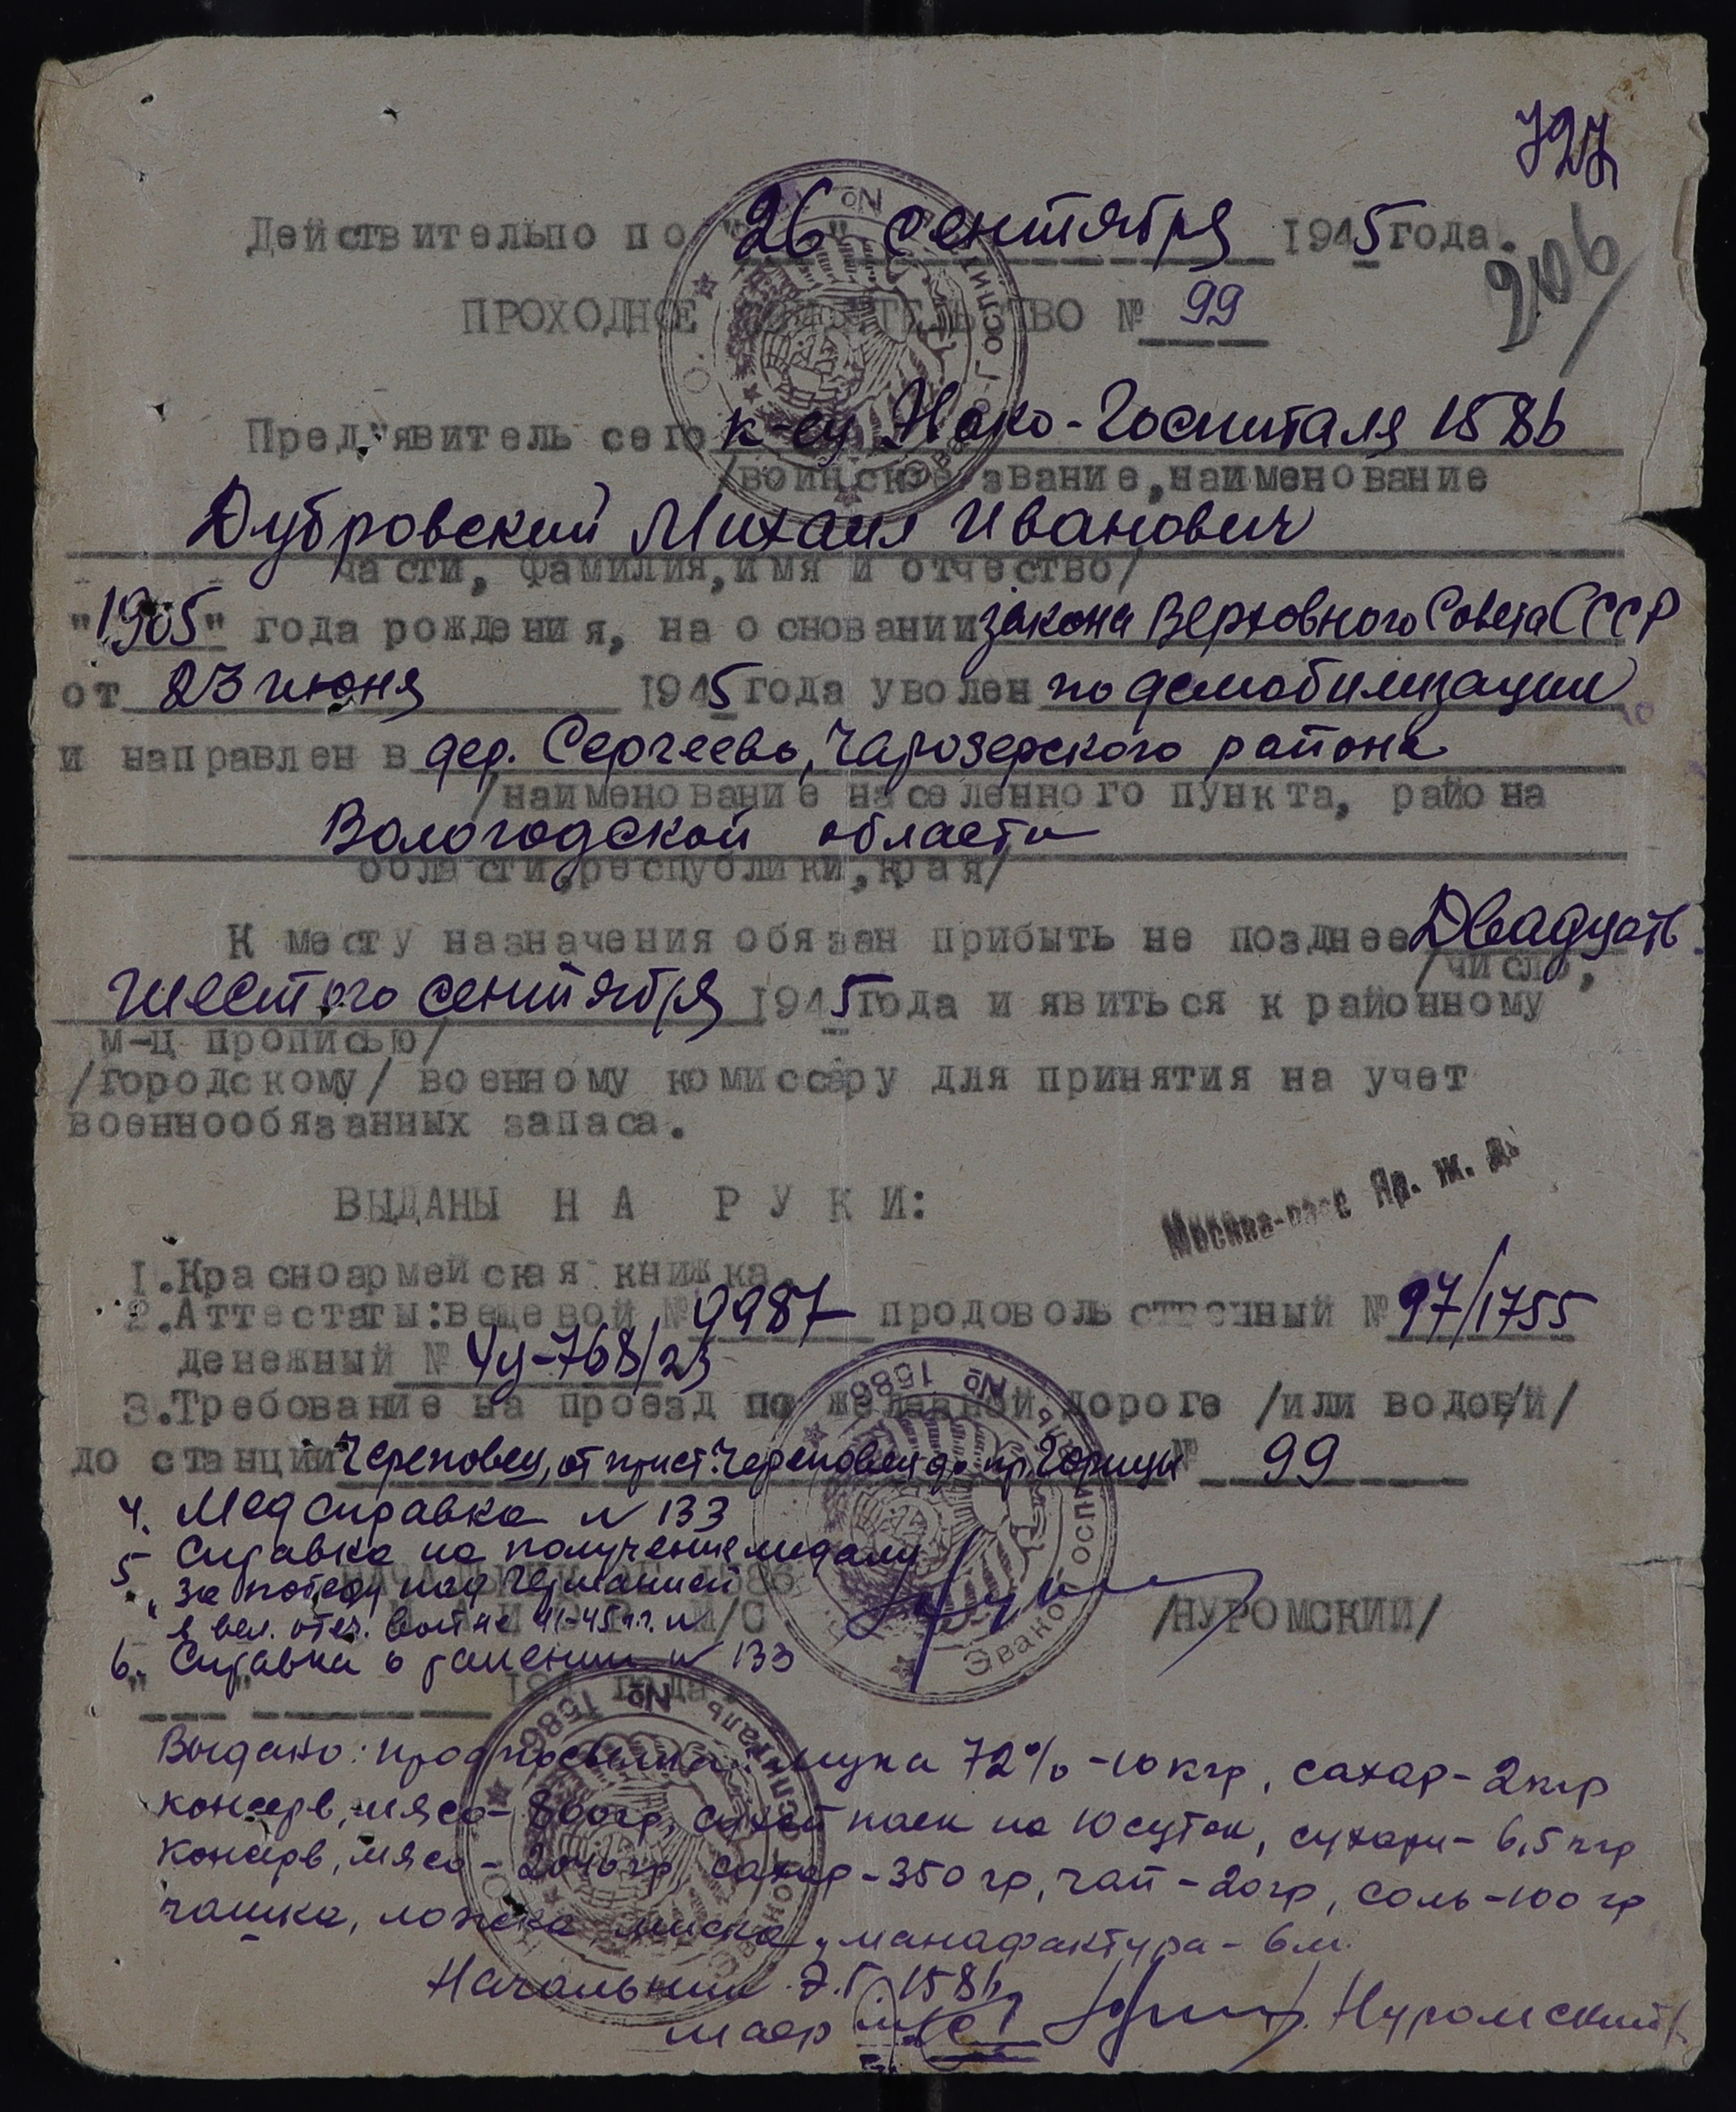 727
206
Действительно по "26" сентября 1945 года.
ПРОХОДНОЕ СВИДЕТЕЛЬСТВО № 99
Пред"явитель сего к-ец Эвако-Госпиталя 1586
/воинское звание, наименование
Дубровский Михаил Иванович
части, фамилия, имя и отчество/
"1905" года рождения, на основании закона Верховного Совета СССР
от 23 июня 1945 года уволен по демобилизации
и направлен в дер. Сергеево, Чарозерского района
/наименование населенного пункта, района
Вологодской области
области, республики, края/
К месту назначения обязан прибыть не позднее Двадцать
/число,
шестого сентября 1945 года и явиться к районному
м-ц прописью/
/городскому/ военному комиссару для принятия на учет
военнообязанных запаса.
ВЫДАНЫ НА РУКИ:
Москва-пасс Яр. ж. д.
1.Красноармейская книжка.
2.Аттестаты: вещевой № 9987 продовольственный № 97/1755
денежный № 4у-768/23
3.Требование на проезд по железной дороге /или водой/
до станции Череповец, от прист. Череповец до пр. Горицы № 99
4. Медсправка № 133
5 Справка на получение медали
"За победу над Германией
в вел. отеч. войне 41-45 г.г. №
/НУРОМСКИЙ/
6. Справка о ранении № 133
194 года
Эвакогоспиталь № 1586
Выдано: продпосылка: мука 72% - 10 кгр, сахар - 2 кгр
консерв, мясо - 800 гр, сухой паек на 10 суток, сухари - 6,5 кгр
консерв, мясо - 2040 гр сахар - 350 гр, чай - 20 гр, соль - 100 гр
чашка, ложка, миска, манафактура - 6 м.
Начальник Э.Г. 1586
маор м/с Нуромский/